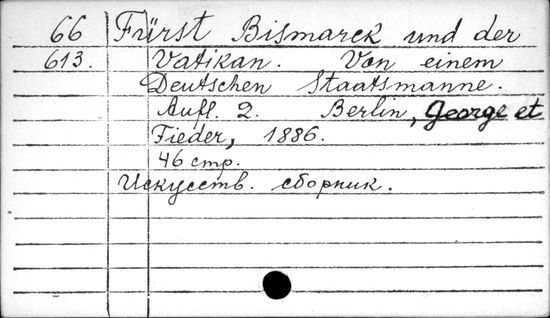 66 Fürst Bismarck und der
613. Vatikan. Von einem
Deutschen Staatsmanne.
Aufl. 2. Berlin, George et
Fieder, 1886.
46 стр.
Искусств. сборник.